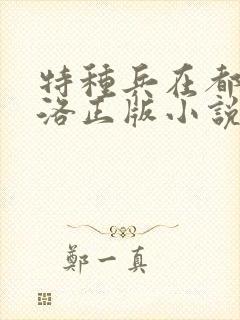 特種兵在都
洛正版小說
鄭一真